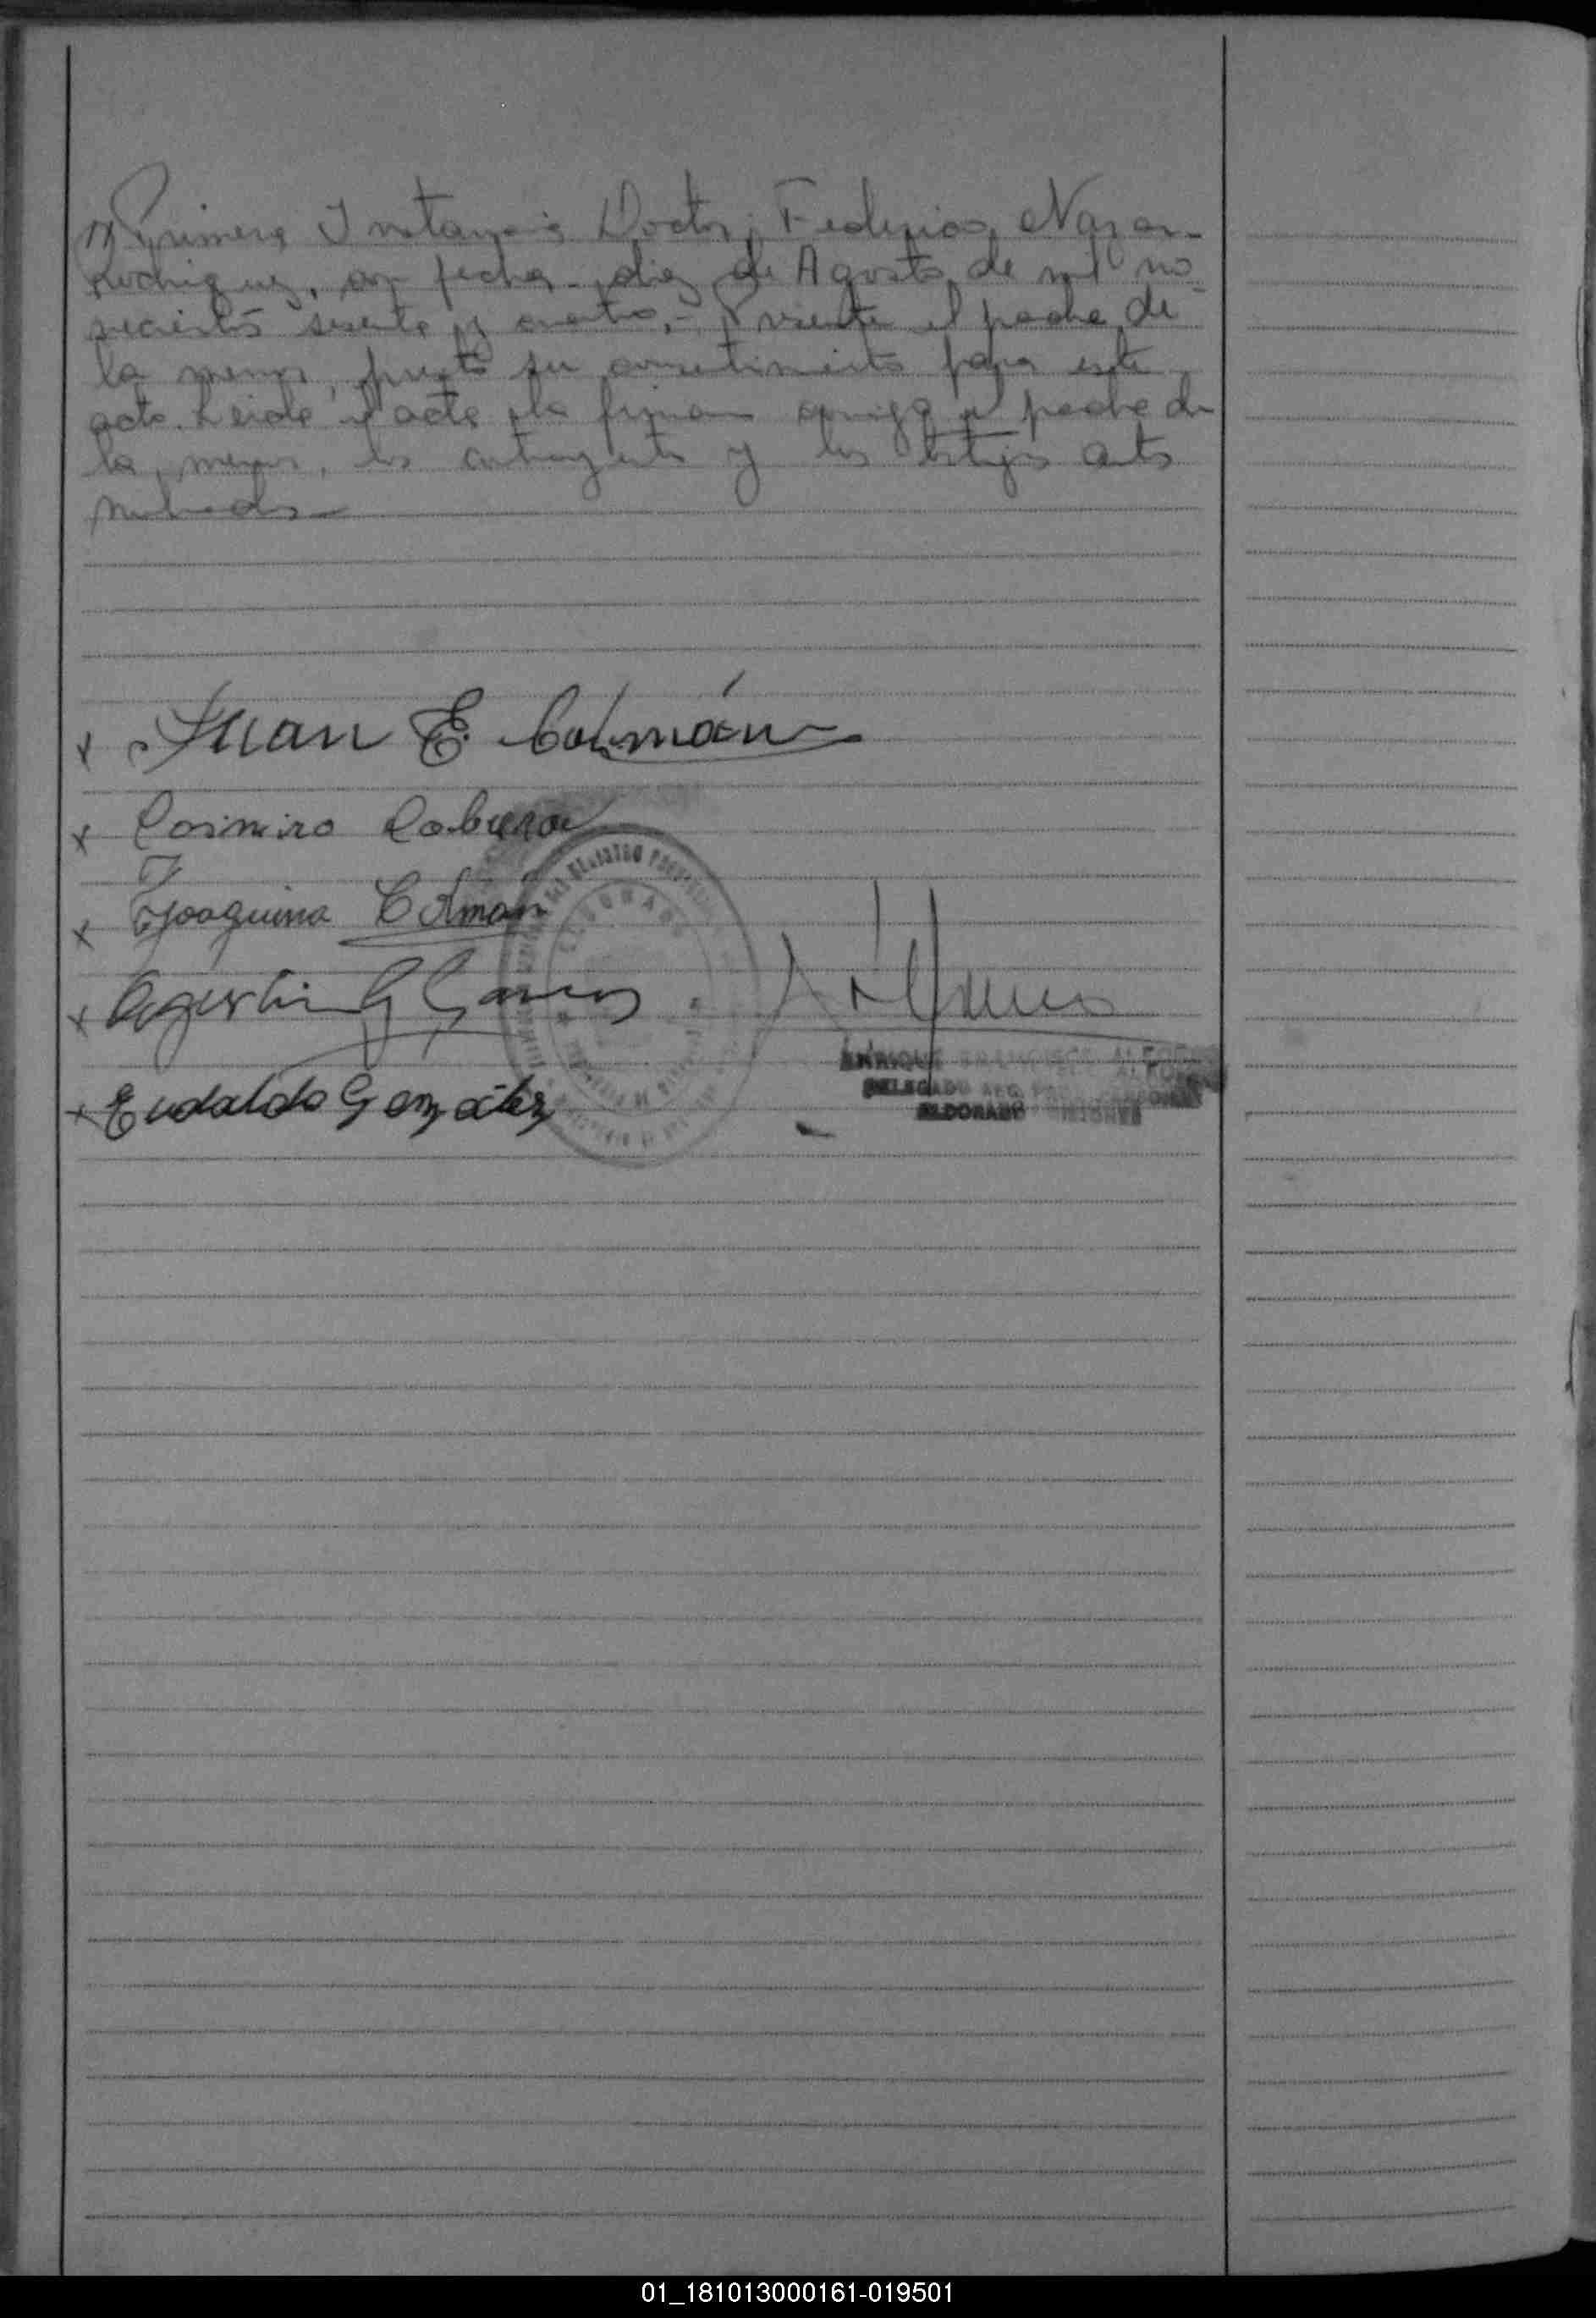 Primera Instancia Doctor Federico
Rodriguez, con fecha diez de Agosto de mil no-
vecientos sesenta y cuatro.- Presente el padre de
la menor, presta su consentimiento para este
acto. Leida el acta la firman conmigo el padre de
la menor, los contrayentes y los testigos antes
nombrados.-
x Juan E. Colmán
x Casimiro Cabrera
x Joaquina Colman
x Agustin G
x Eudaldo González
ENRIQUE FRANCISCO
DELEGADO
ELDORADO MISIONES
01_181013000161-019501